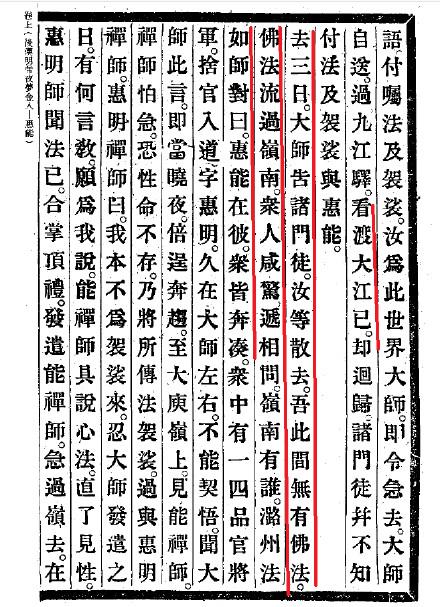 語。付囑法及袈裟。汝爲此世界大師。即令急去。大師
自送過九江驛。看渡大江已。却迴歸。諸門徒幷不知
付法及袈裟與惠能。
去三日。大師告諸門徒。汝等散去。吾此間無有佛法。
佛法流過嶺南。衆人咸驚。遞相問。嶺南有誰。潞州法
如師對曰。惠能在彼。衆皆奔湊。衆中有一四品官將
軍。捨官入道。字惠明。久在大師左右。不能契悟。聞大
師此言。即當曉夜。倍逞奔趨。至大庾嶺上。見能禪師。
禪師怕急。恐性命不存。乃將所傳法袈裟。過與惠明
禪師。惠明禪師曰。我本不爲袈裟來。忍大師發遣之
日。有何言敎。願爲我說。能禪師具說心法。直了見性。
惠明師聞法已。合掌頂禮。發遣能禪師。急過嶺去。在